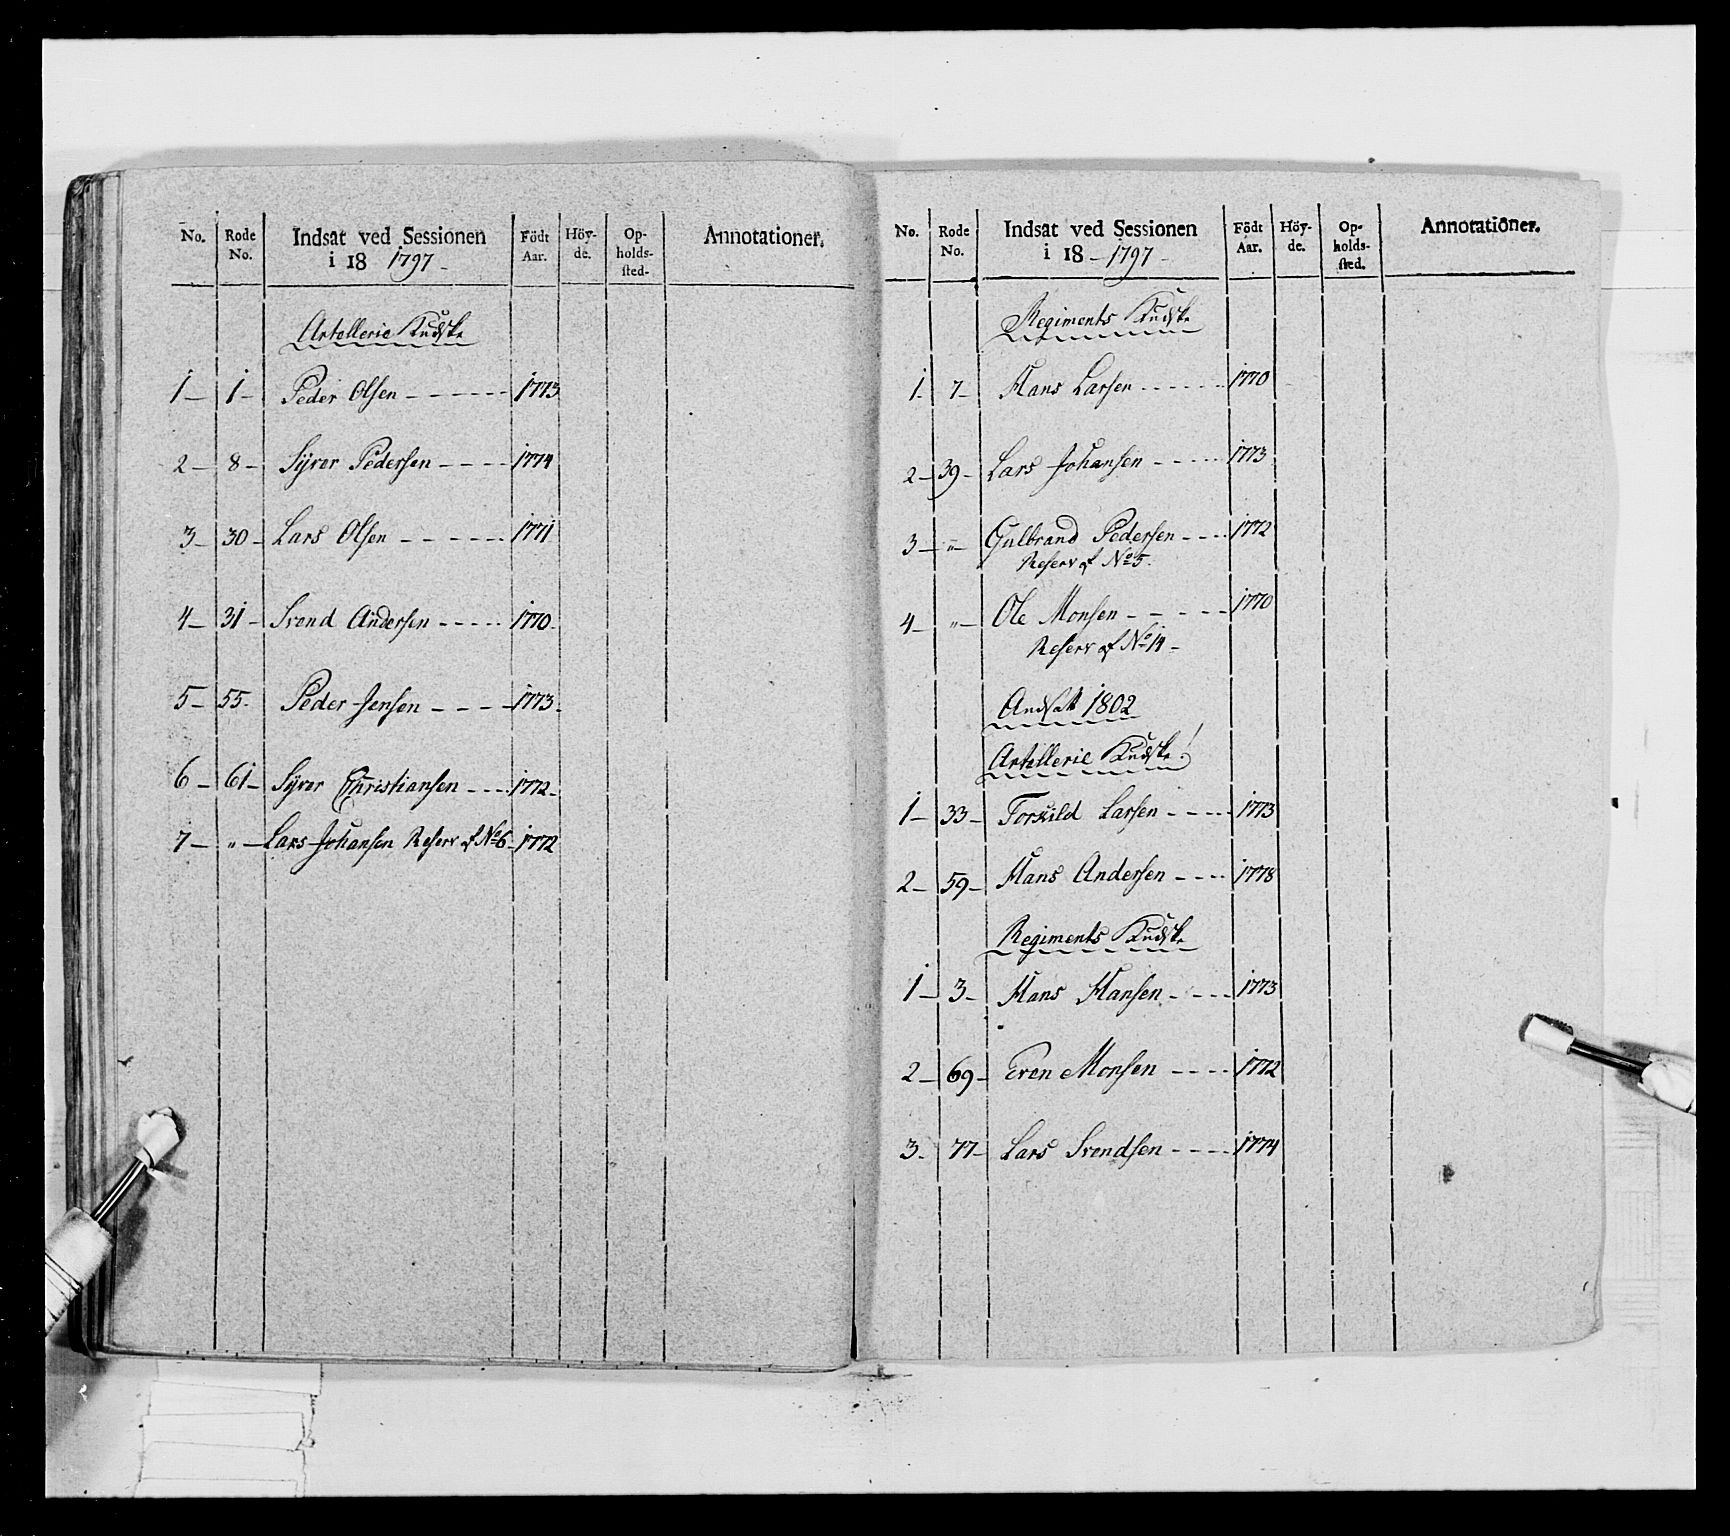 No. Rode No. Indsat ved Sessionen i 18 1797 Födt Aar. Höy-de. Op-holds-sted. Annotationer.
Artellerie Kudske
1 — 1 — Peder Olsen — — — — — — 1773
2 — 8 — Syver Pedersen — — — — 1774
3 — 30 — Lars Olsen — — — — — — 1771
4 — 31 — Svend Andersen — — — — — 1770
5 — 55 Peder Jensen — — — — 1773
6 — 61 — Syver Christiansen — — — — 1772
7 — " — Lars Johansen Reserv af No 6 — 1772
No. Rode No. Indsat ved Sessionen i 18 — 1797 Födt Aar. Höy-de. Op-holds-sted. Annotationer.
Regiments Kudske
1 7 — Hans Larsen — — — — — — 1770
2 — 39 — Lars Johansen — — — — — 1773
3 — " — Gulbrand Pedersen — — — — 1772
Reserv af No 5.
4 — " — Ole Monsen — — — — — 1770
Reserv af No 14 —
Andsatt 1802
Artellerie Kudske
1 — 33 — Torkild Larsen — — — — — 1773
2 — 59 — Hans Andersen — — — — 1778
Regiments Kudske
1 — 3 — Hans Hansen — — — — 1773
2 — 69 — Even Monsen — — — — 1772
3 — 77 — Lars Svendsen — — — — 1774